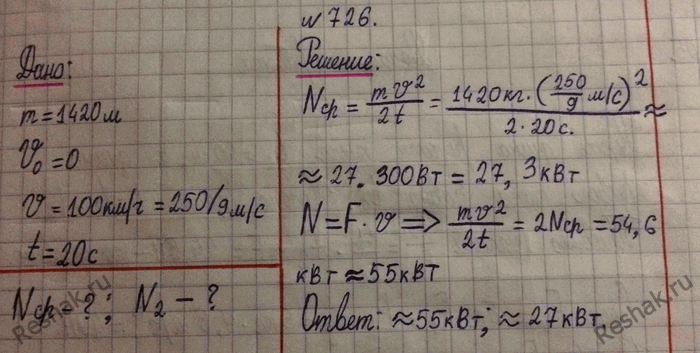 №726.
Дано:
m=1420м
υ₀=0
υ=100км/ч=250/9м/с
t=20с
Nср-?; N₂-?
Решение:
Nср = mυ²/2t = 1420кг·(250/9 м/с)²/2·20с. ≈
≈ 27.300Вт = 27,3кВт
N=F·υ => mυ²/2t = 2Nср = 54,6
кВт ≈55кВт
Ответ: ≈55кВт; ≈27кВт.
Reshak.ru
Reshak.ru